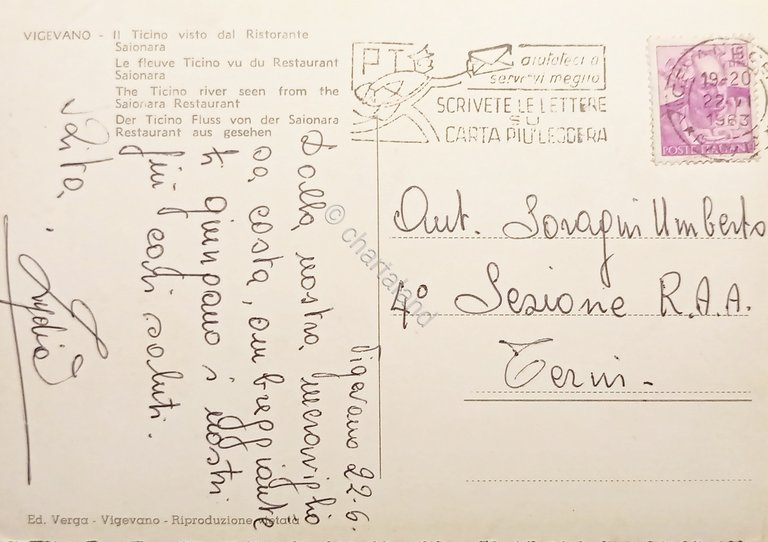 VIGEVANO - Il Ticino visto dal Ristorante
Saionara
Le fleuve Ticino vu du Restaurant
Saionara
The Ticino river seen from the
Saionara Restaurant
Der Ticino Fluss von der Saionara
Restaurant aus gesehen
PT
aiutateci a
servirvi meglio
SCRIVETE LE LETTERE
SU
CARTA PIÙ LEGGERA
19-20
22.
1963
POSTE ITALIANE
Vigevano 22-6.
Dalla nostra meraviglio
sa costa, ombreggiante
ti giungano i nostri
più cari saluti.
Rita,
Lydia
Aut. Soragni Umberto
4° Sezione R.A.A.
Terni -
Ed. Verga - Vigevano - Riproduzione vietata
© chartaland